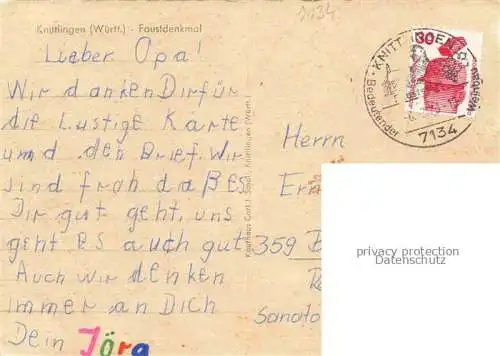 Knittlingen (Württ.) - Faustdenkmal
7134
Lieber Opa!
Wir danken Dir für
die Lustige Karte
und den Brief. Wir
sind froh daßes
Dir gut geht, uns
geht es auch gut
Auch wir denken
immer an Dich
Dein Jörg
Kaufhaus Carl J. Vogel, Knittlingen (Württ.)
KNITTLINGEN
Bedeutender Weinbau
7134
30
Herrn
359 B
Sanato
privacy protection
Datenschutz